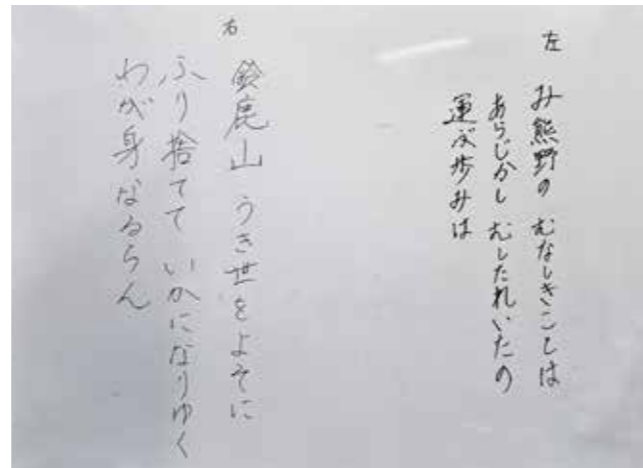 左
み熊野の むなしきことは
あらじかし むしたれいたの
運ぶ歩みは
右
鈴鹿山 うき世をよそに
ふり捨てて いかになりゆく
わが身なるらん